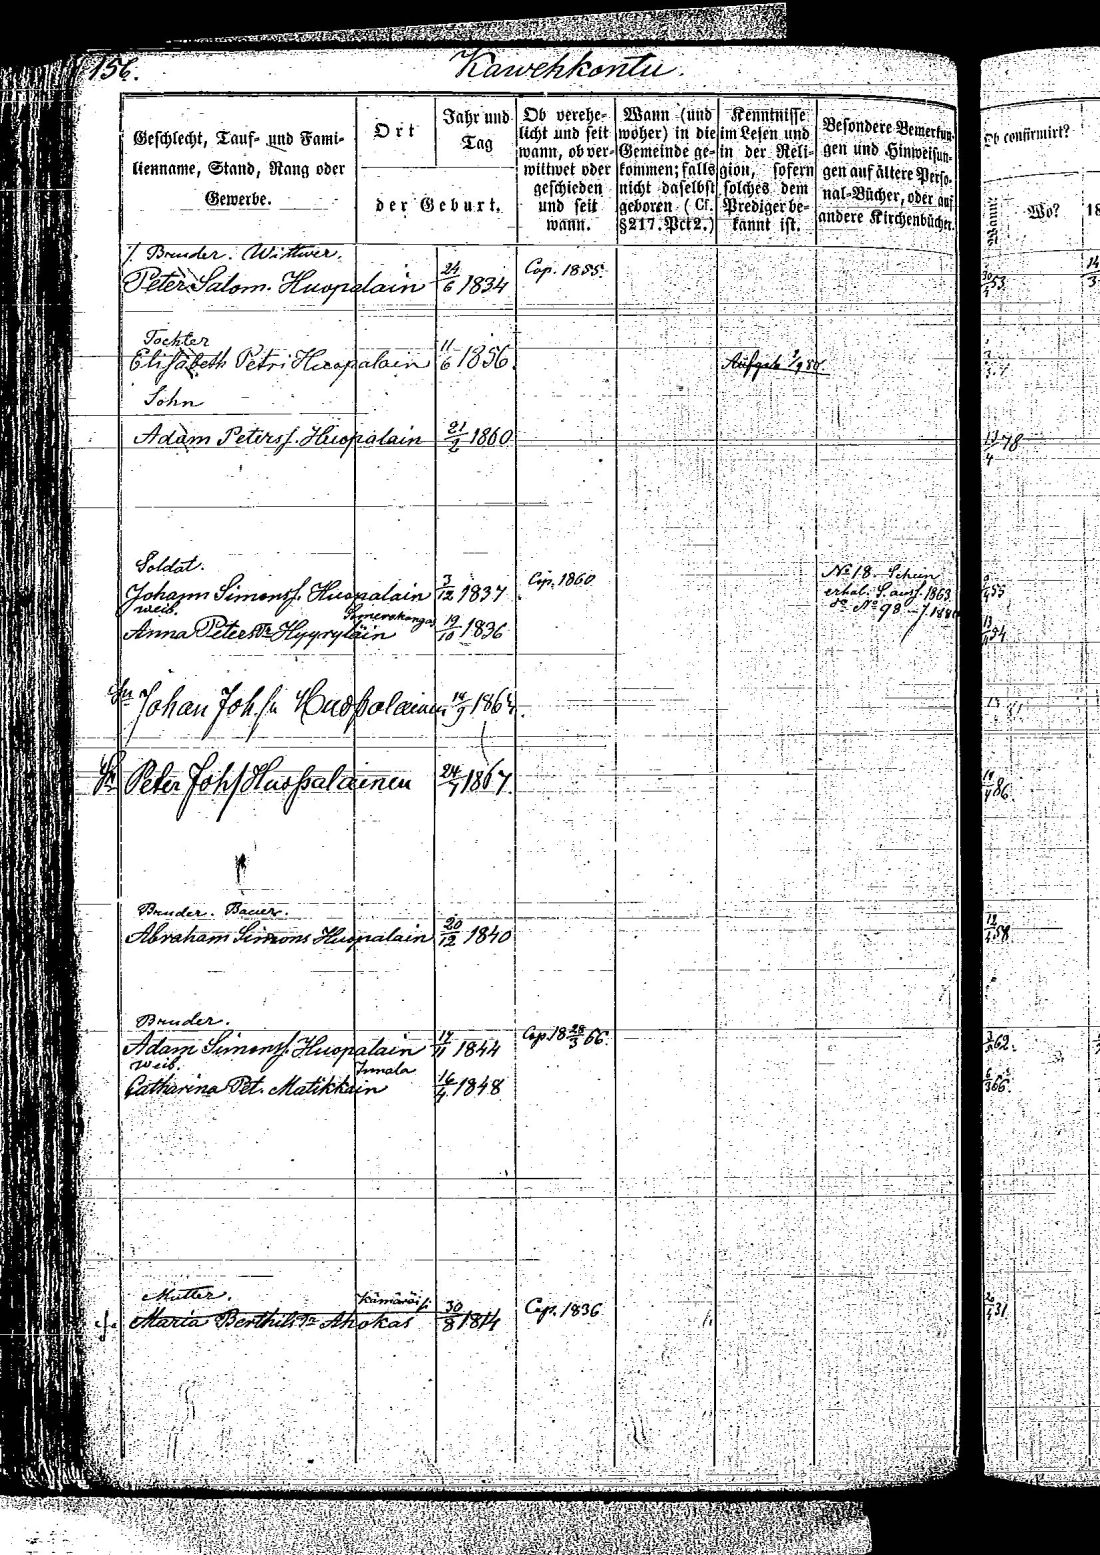 156.
Kawehkontu.
Geschlecht, Tauf- und Fami-
lienname, Stand, Rang oder
Gewerbe.
Ort
der Geburt.
Jahr und
Tag
Ob verehe-
licht und seit
wann, ob ver-
wittwet oder
geschieden
und seit
wann.
Wann (und
woher) in die
Gemeinde ge-
kommen; falls
nicht daselbst
geboren (Cf.
§217. Pct 2.)
Kenntnisse
im Lesen und
in der Reli-
gion, sofern
solches dem
Prediger be-
kannt ist.
Besondere Bemerkun-
gen und Hinweisun-
gen auf ältere Perso-
nal-Bücher, oder auf
andere Kirchenbücher.
Ob confirmirt?
Wann?
Wo?
18
Bruder. Wittwer.
Peter Salom. Huopalain 24/6 1834 Cop. 1855.
Tochter
Elisabeth Petri Huopalain 11/6 1856.
Sohn
Adam Peterss. Huopalain 21/2 1860 13/4 78
Soldat.
Johann Simonss. Huopalain 3/12 1837 Cop. 1860
No 18. Schein
erhal.
1863
No 98
Weib.
Anna Peters Tr Hyyryläin 19/10 1836
Sn Johan Joh. Sn Huoppalainen 14/9 1864.
Sn Peter Johs Huoppalainen 24/7 1867. 86.
Bruder. Bauer.
Abraham Simons Huopalain 20/12 1840 58
Bruder.
Adam Simonss. Huopalain 17/11 1844 Cop. 18 28/3 66. 62.
Weib. Innala
Catharina Pet. Matikkain 16/4 1848 66.
Mutter.
Maria Berthils Tr Ahokas 30/8 1814 Cop. 1836 31